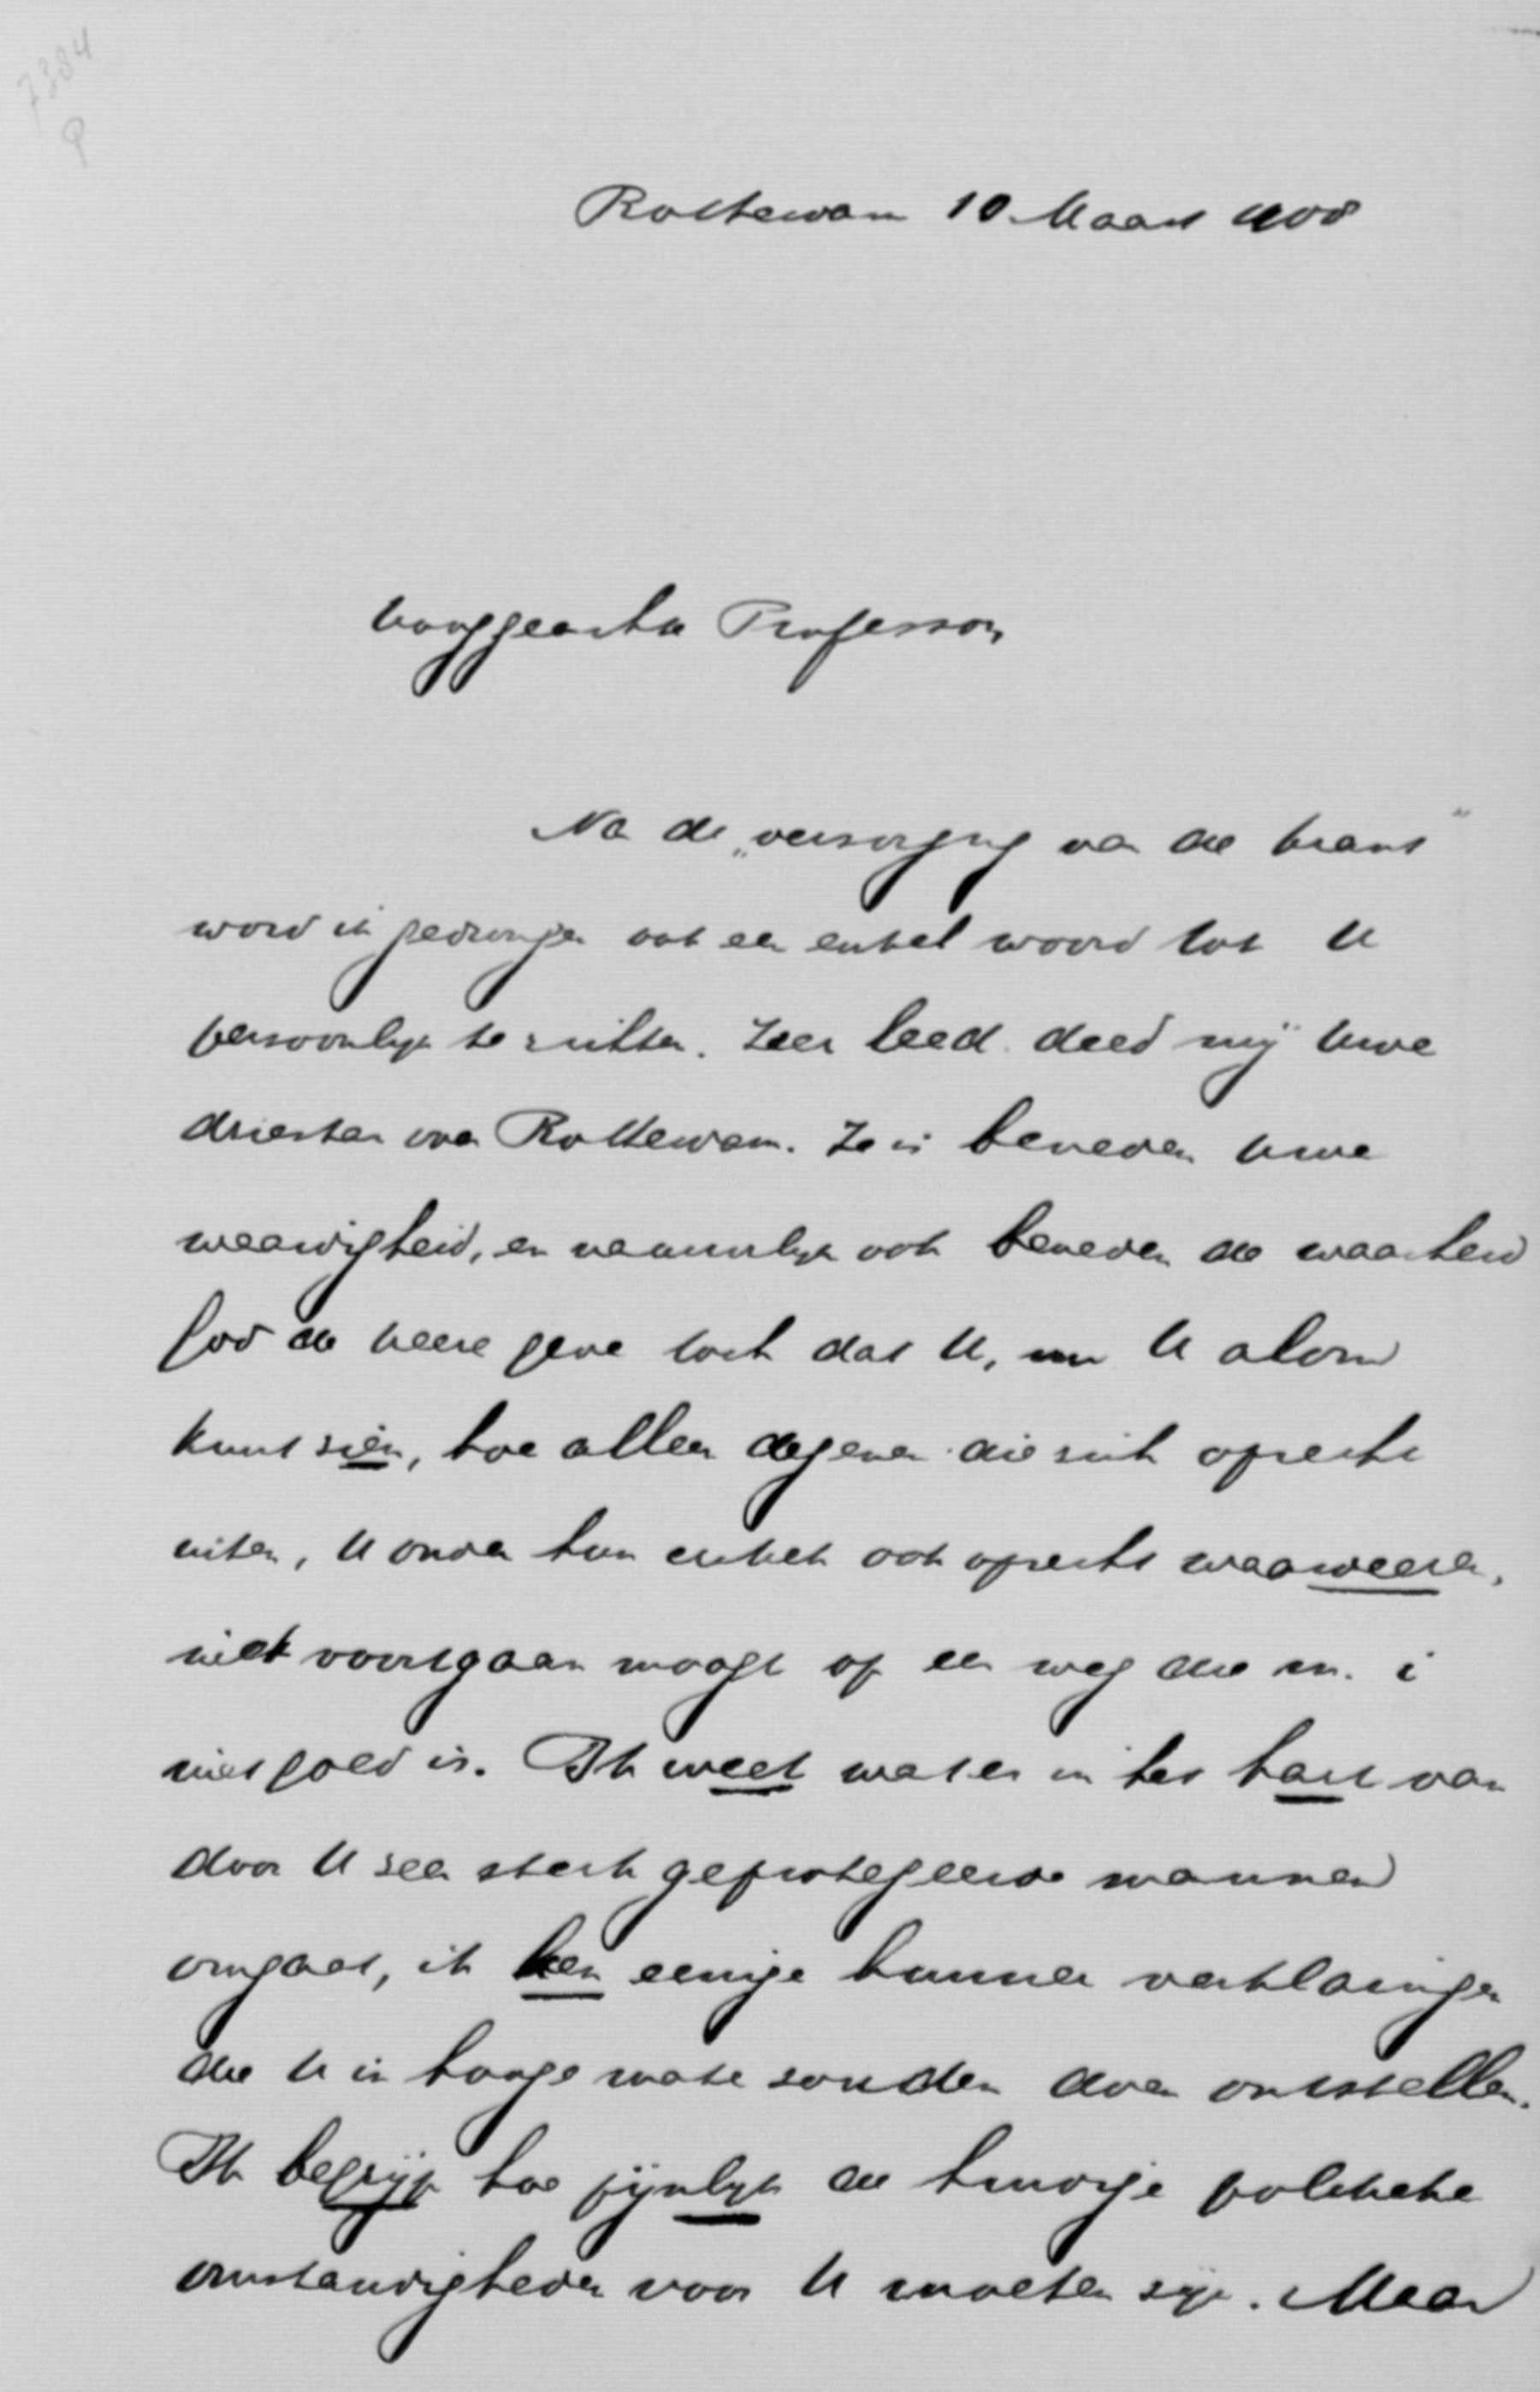 7384
Rotterdam 10 Maart 1908
Hooggeachte Professor,
Na de „verzorging van de krant”
word ik gedrongen ook een enkel woord tot U
persoonlijk te richten. Zeer leed deed mij Uwe
driestar over Rotterdam. Ze is beneden Uwe
waardigheid, en natuurlijk ook beneden de waarheid
God de Heere geve toch dat U, nu U alom
kunt zien, hoe alleen degenen die zich oprecht
uiten, U onder hun critiek ook oprecht waardeeren,
niet voortgaan moogt op een weg die m. i
niet goed is. Ik weet wat er in het hart van
door U zeer sterk geprotegeerde mannen
omgaat, ik ken eenige hunner verklaringen
die U in hooge mate zouden doen ontstellen.
Ik begrijp hoe pijnlijk de huidige politieke
omstandigheden voor U moeten zijn. Maar